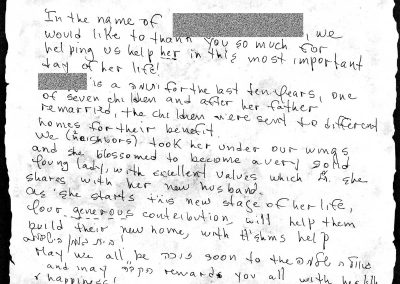 In the name of
would like to thank you so much for , we
helping us help her in this most important
day of her life!
is a יתומה for the last ten years, one
of seven children and after her father
remarried, the children were sent to different
homes for their benefit.
We (neighbors) took her under our wings
and she blossomed to become a very good
young lady, with excellent values which she
shares with her new husband.
As she starts this new stage of her life,
your generous contribution will help them
build their new home, with Hashms help
May we all be soon to the
and may הקב"ה rewards you all with health
& happiness!